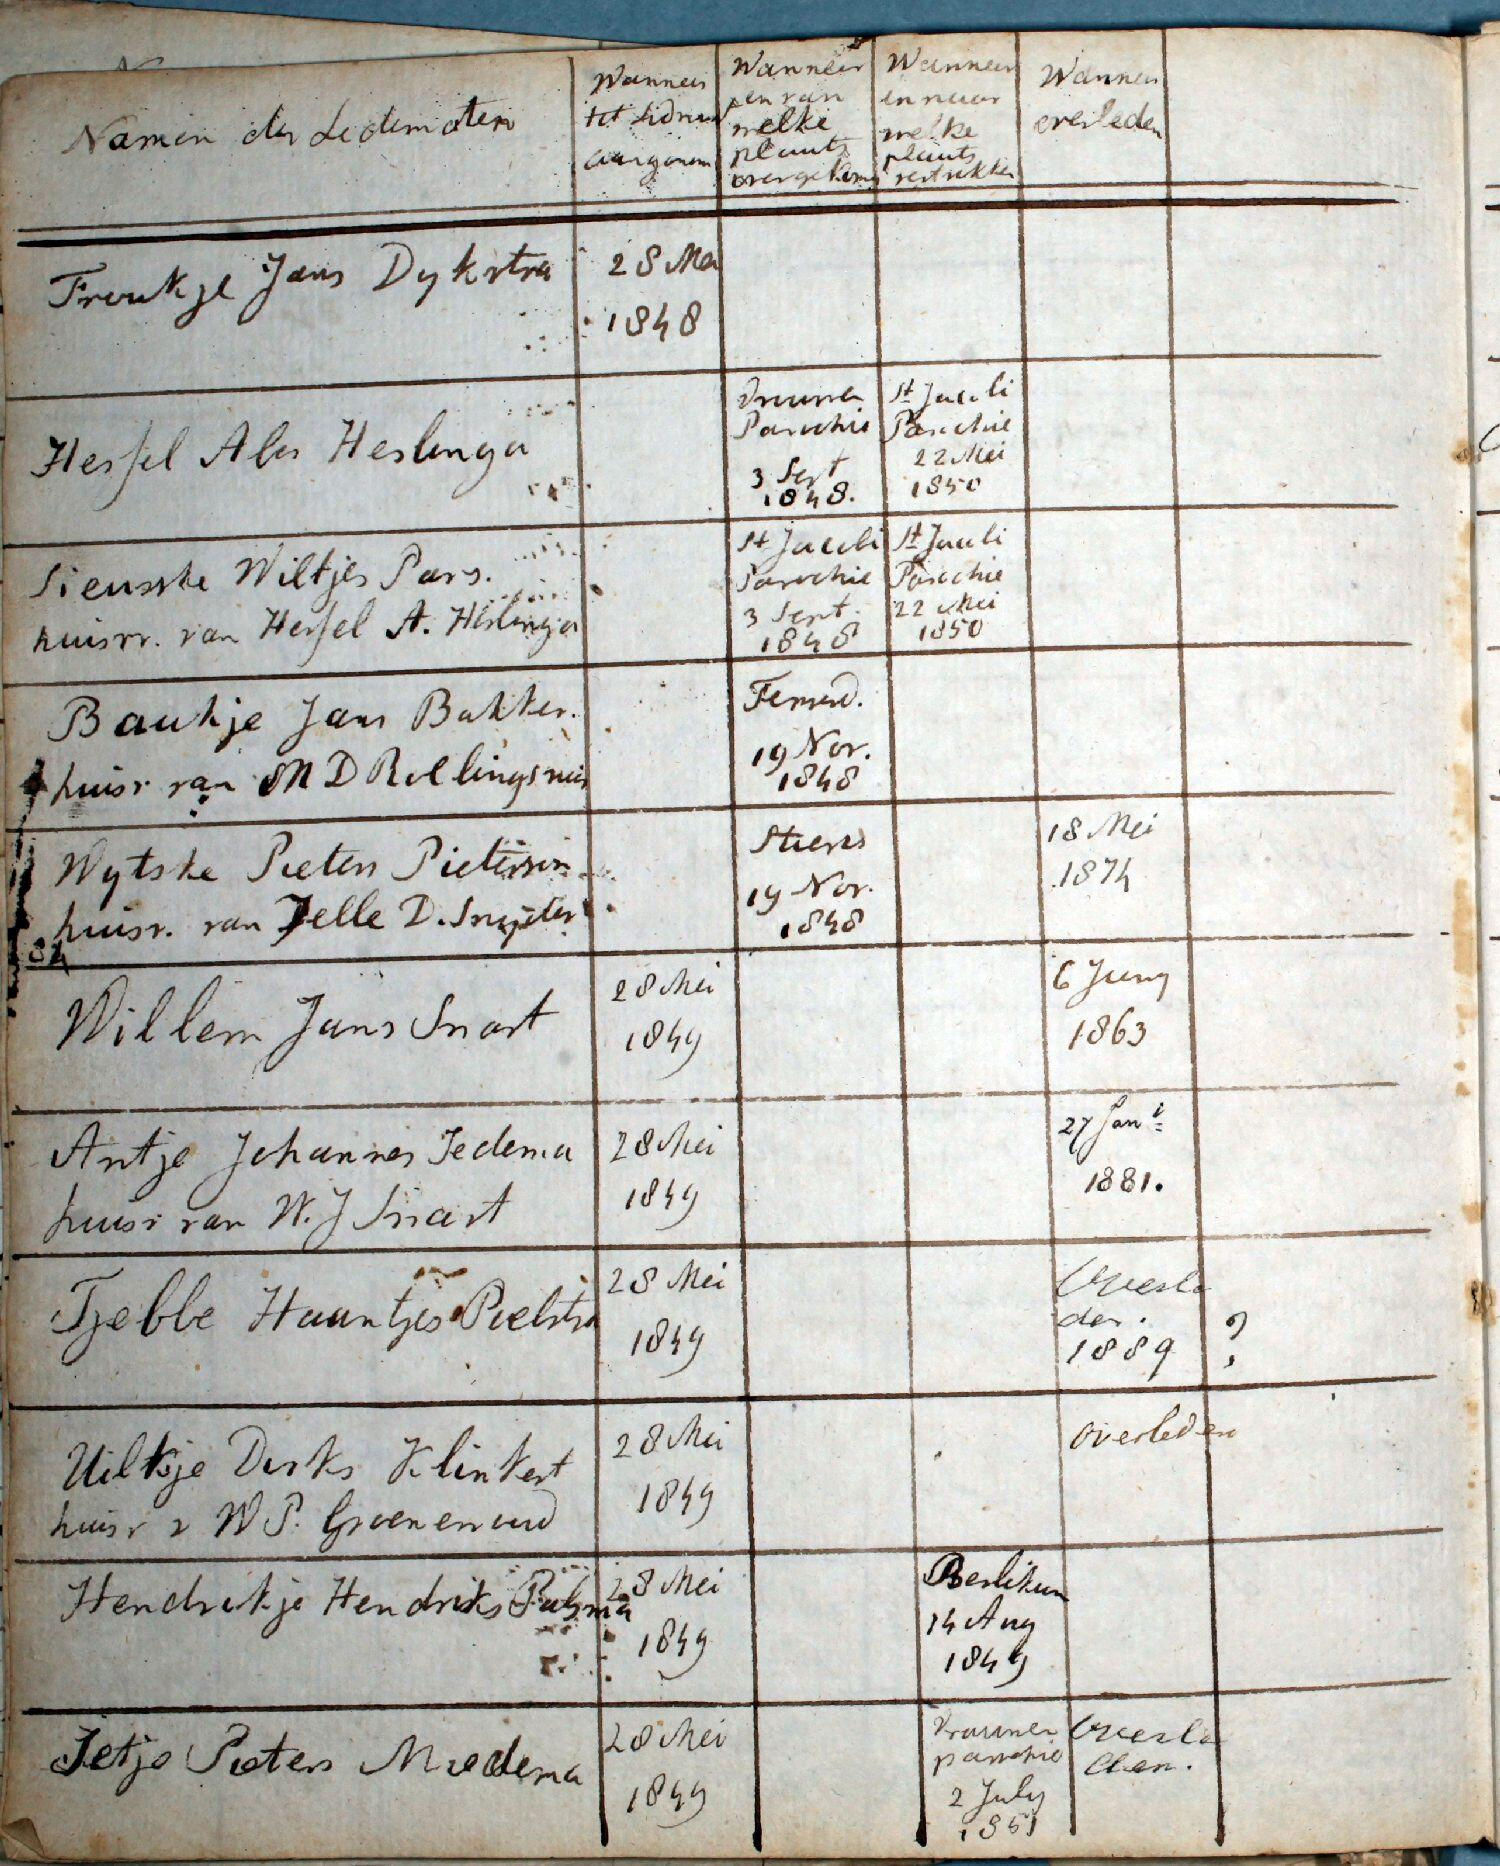 Namen der Ledematen
Wanneer
tot Lidmaat
aangenomen
Wanneer
en van
welke
plaats
overgekomen
Wanneer
en naar
welke
plaats
vertrokken
Wanneer
overleden
Froukje Jans Dykstra
28 Mei
1848
Hessel Ales Heslinga
Vrouwen
Parochie
3 Sept
1848.
St Jacobi
Parochie
22 Mei
1850
Sieuwke Wiltjes Pars.
huisvr. van Hessel A. Heslinga
St Jacobi
Parochie
3 Sept.
1848
St Jacobi
Parochie
22 Mei
1850
Baukje Jans Bakker.
huisv van M D Rollingswier
Ferwerd.
19 Nov.
1848
Wytske Pieters Pietersen
huisv. van Jelle D. Snijder
Stiens
19 Nov.
1848
18 Mei
1874
Willem Jans Swart
28 Mei
1849
6 Juny
1863
Antje Johannes Iedema
huisv van W. J Swart
28 Mei
1849
27 Jan i
1881.
Tjebbe Haantjes Poelstra
28 Mei
1849
Overle
den.
1889 ?
Uilkje Dirks Klinkert
huisv v W P. Groenewoud
28 Mei
1849
overleden
Hendrikje Hendriks Palsma
28 Mei
1849
Berlikum
14 Aug
1849
Ietje Pieters Miedema
28 Mei
1849
Vrouwen
parochie
2 July
1851
Overle
den.